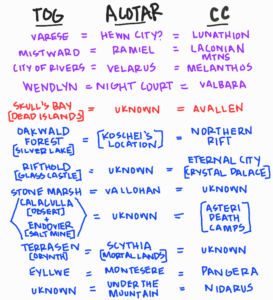 TOG ACOTAR CC
VARESE = HEWN CITY? = LUNATHION
MISTWARD = RAMIEL = LACONIAN MTNS
CITY OF RIVERS = VELARUS = MELANTHOS
WENDLYN = NIGHT COURT = VALBARA
SKULL'S BAY [DEAD ISLANDS] = UKNOWN = AVALLEN
OAKWALD FOREST [SILVER LAKE] = [KOSCHEI'S LOCATION] = NORTHERN RIFT
RIFTHOLD [GLASS CASTLE] = UKNOWN = ETERNAL CITY [CRYSTAL PALACE]
STONE MARSH = VALLOHAN = UKNOWN
CALACULLA [DESERT] + ENDOVIER [SALT MINE] = UKNOWN = [ASTERI DEATH CAMPS]
TERRASEN [ORYNTH] = SCYTHIA [MORTAL LANDS] = UKNOWN
EYLLWE = MONTESERE = PANGERA
UKNOWN = UNDER THE MOUNTAIN = NIDARUS